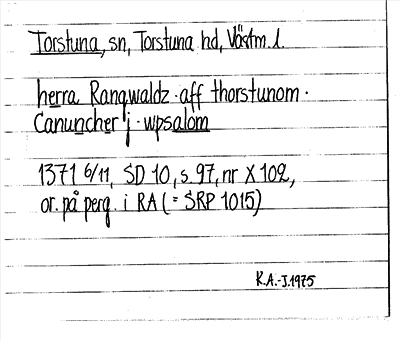 Torstuna, sn, Torstuna hd, Västm. l.
herra Rangwaldz · aff thorstunom ·
Canuncher j · wpsalom
1371 6/11, SD 10, s. 97, nr X 102,
or. på perg. i RA (= SRP 1015)
K.A.-J. 1975